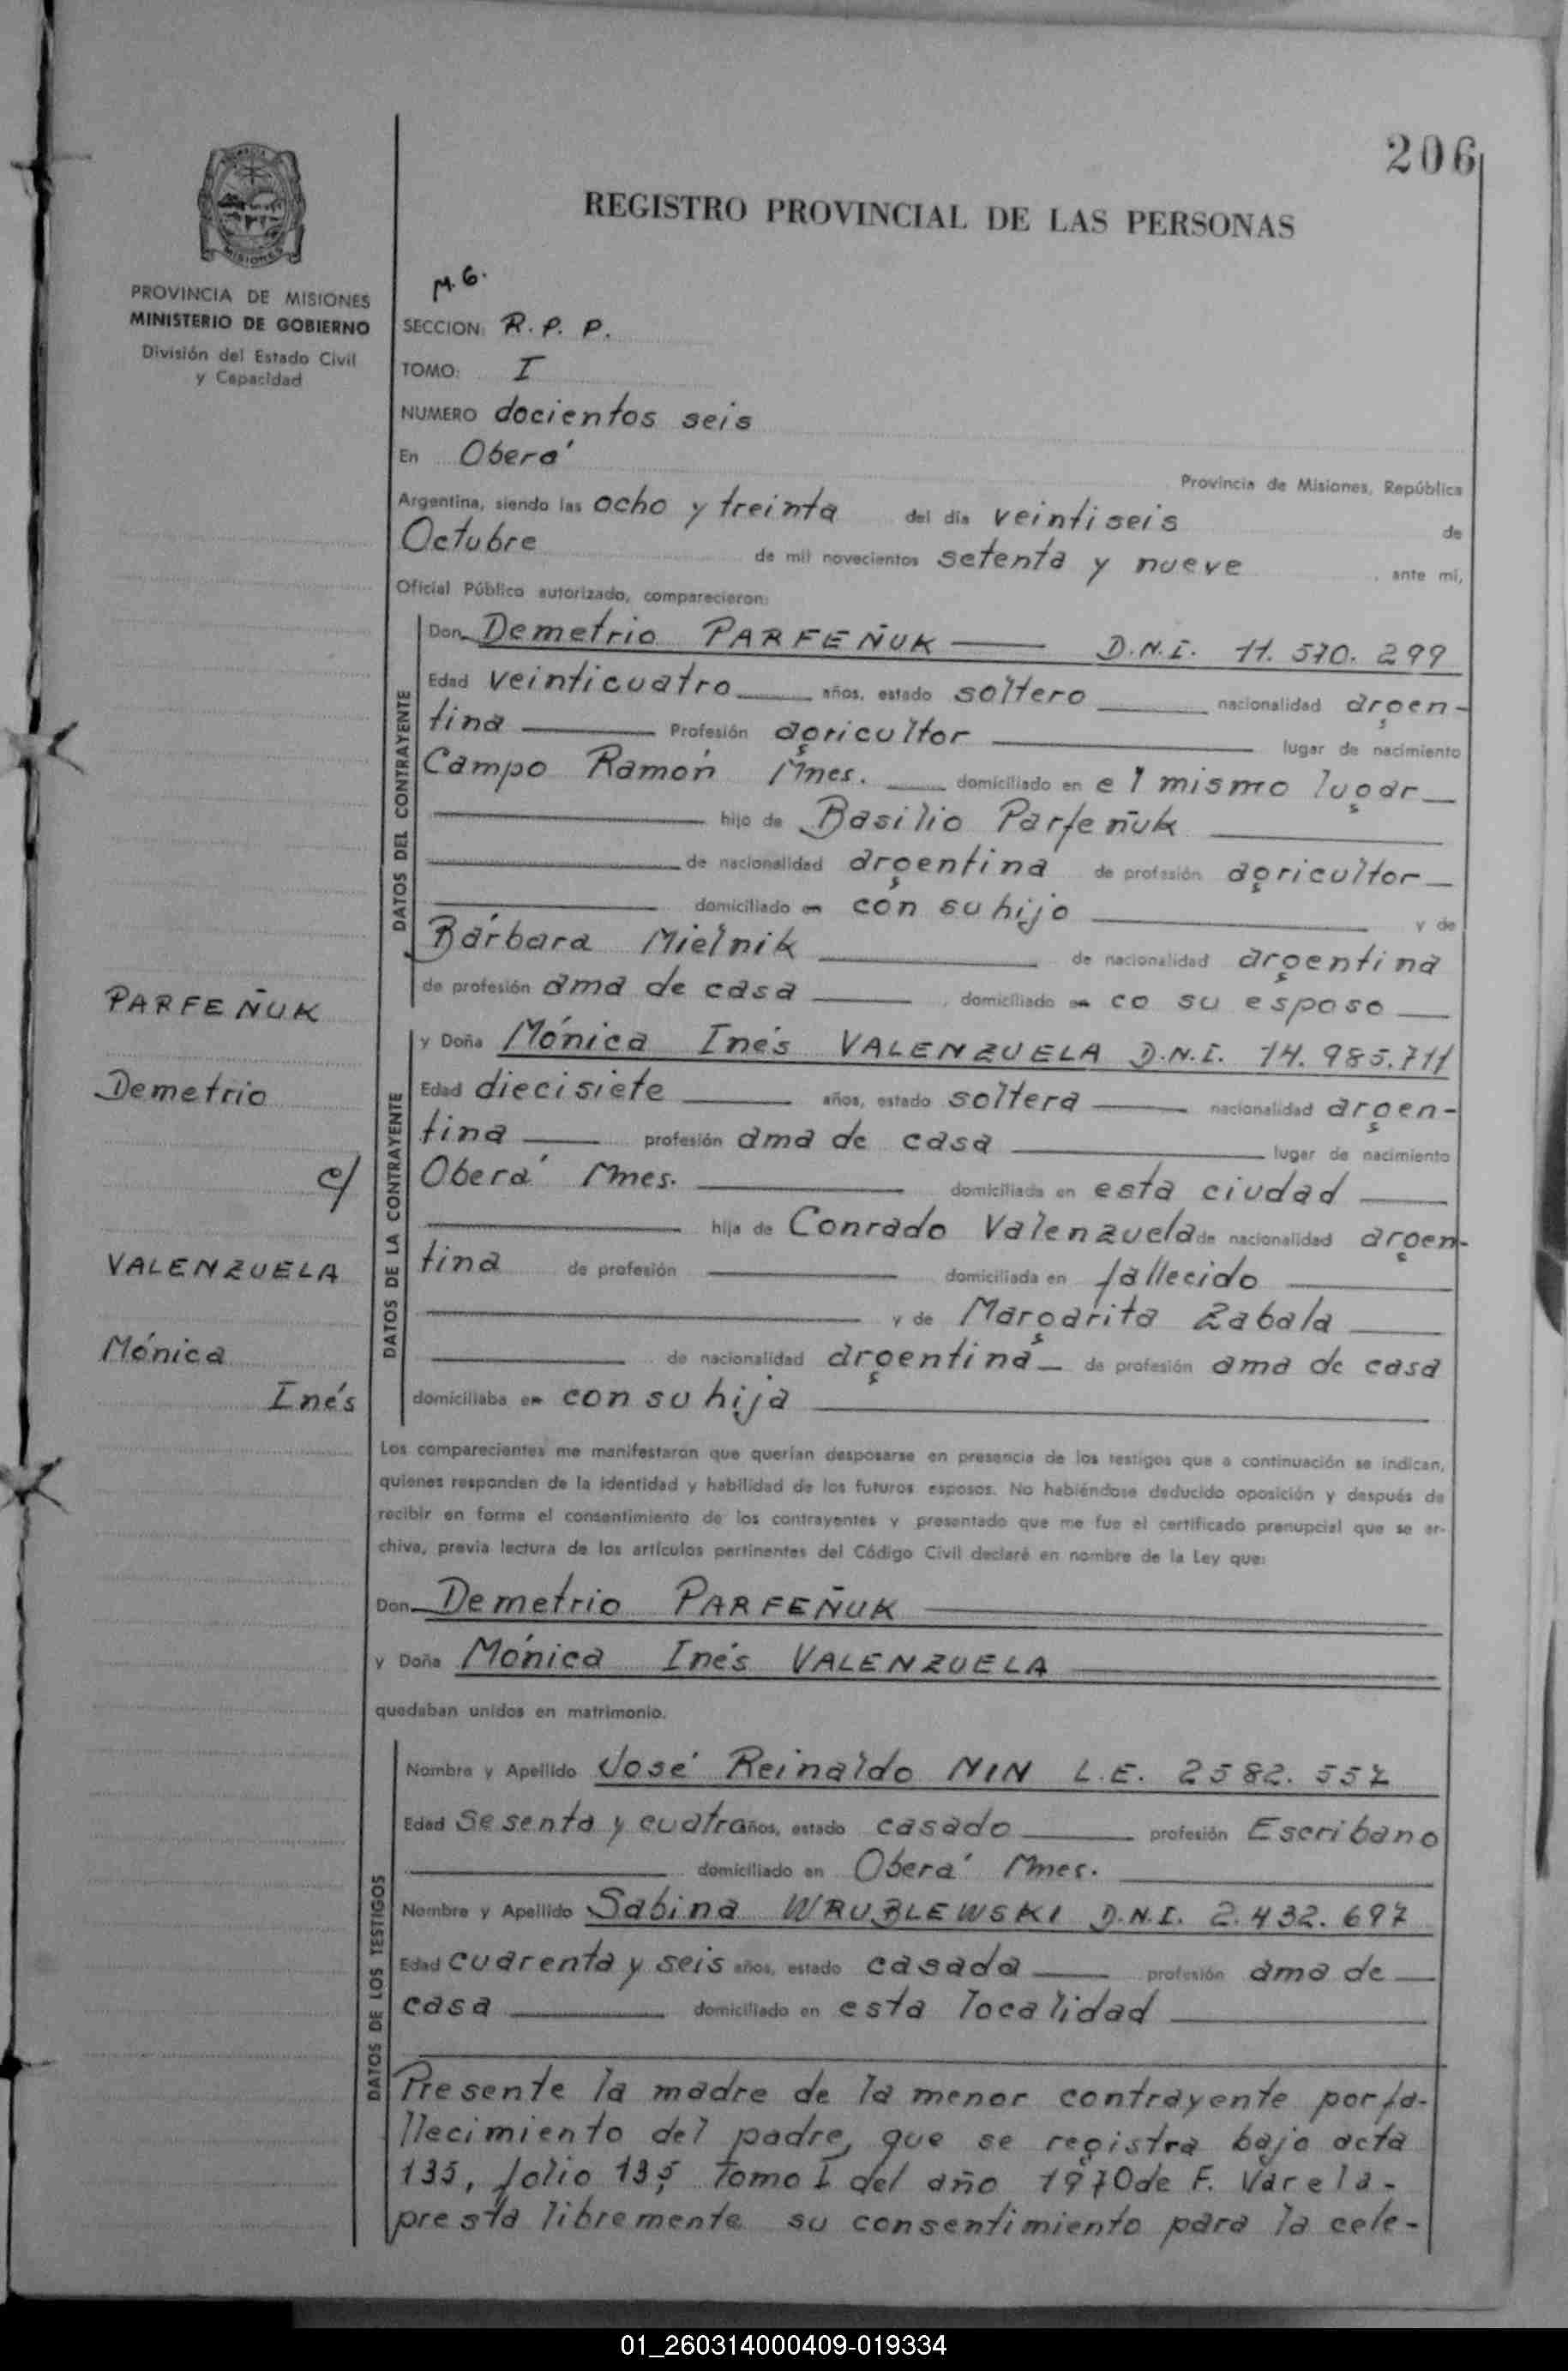 206
REGISTRO PROVINCIAL DE LAS PERSONAS
PROVINCIA DE MISIONES
MINISTERIO DE GOBIERNO
División del Estado Civil
y Capacidad
M.G.
SECCION: R. P. P.
TOMO: I
NUMERO docientos seis
En Oberá
Provincia de Misiones, República
Argentina, siendo las ocho y treinta del día veintiseis de
Octubre de mil novecientos setenta y nueve, ante mí,
Oficial Público autorizado, comparecieron:
DATOS DEL CONTRAYENTE
Don Demetrio PARFEÑUK D.N.I. 11.570.299
Edad veinticuatro años, estado soltero nacionalidad argen-
tina Profesión agricultor lugar de nacimiento
Campo Ramón Mnes. domiciliado en el mismo lugar
hijo de Basilio Parfeñuk
de nacionalidad argentina de profesión agricultor
domiciliado en con su hijo y de
Bárbara Mielnik de nacionalidad argentina
de profesión ama de casa, domiciliado en co su esposo
DATOS DE LA CONTRAYENTE
y Doña Mónica Inés VALENZUELA D.N.I. 14.985.711
Edad diecisiete años, estado soltera nacionalidad argen-
tina profesión ama de casa lugar de nacimiento
Oberá Mnes. domiciliada en esta ciudad
hija de Conrado Valenzuela de nacionalidad argen-
tina de profesión domiciliada en fallecido
y de Margarita Zabala
de nacionalidad argentina de profesión ama de casa
domiciliaba en con su hija
PARFEÑUK
Demetrio
c/
VALENZUELA
Mónica
Inés
Los comparecientes me manifestaron que querían desposarse en presencia de los testigos que a continuación se indican,
quienes responden de la identidad y habilidad de los futuros esposos. No habiéndose deducido oposición y después de
recibir en forma el consentimiento de los contrayentes y presentado que me fue el certificado prenupcial que se ar-
chiva, previa lectura de los artículos pertinentes del Código Civil declaré en nombre de la Ley que:
Don Demetrio PARFEÑUK
y Doña Mónica Inés VALENZUELA
quedaban unidos en matrimonio.
DATOS DE LOS TESTIGOS
Nombre y Apellido José Reinaldo NIN L.E. 2582.557
Edad sesenta y cuatro años, estado casado profesión Escribano
domiciliado en Oberá Mnes.
Nombre y Apellido Sabina WRUBLEWSKI D.N.I. 2.432.697
Edad cuarenta y seis años, estado casada profesión ama de
casa domiciliado en esta localidad
Presente la madre de la menor contrayente por fa-
llecimiento del padre, que se registra bajo acta
135, folio 135 Tomo I del año 1970 de F. Varela-
presta libremente su consentimiento para la cele-
01_260314000409-019334